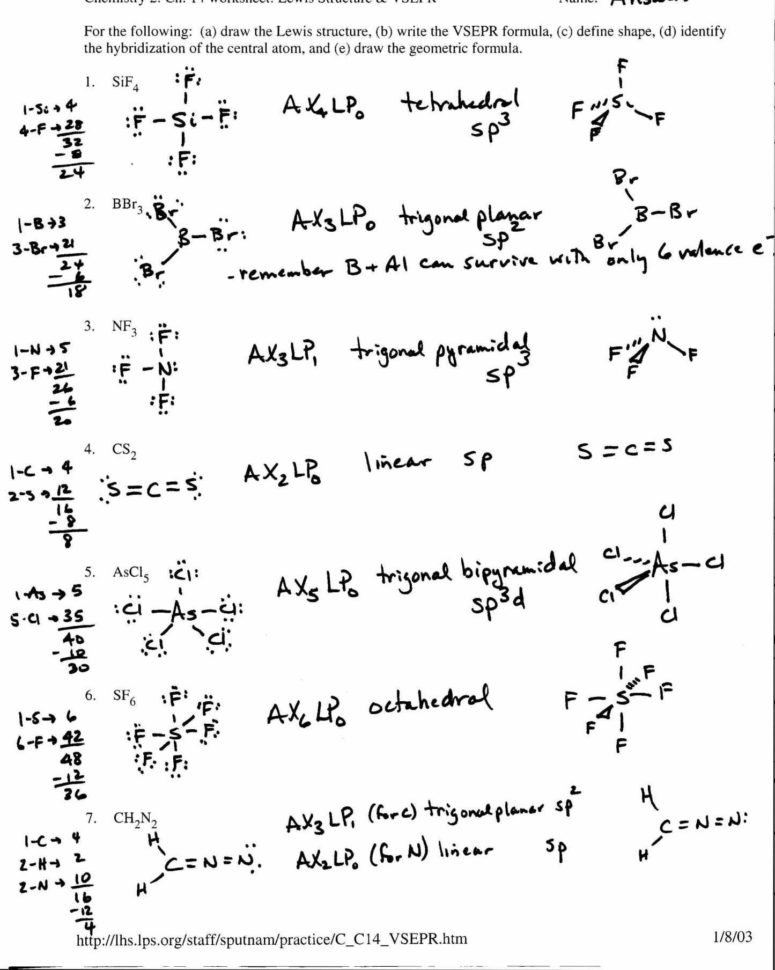 Chemistry 2: Ch. 14 Worksheet: Lewis Structure & VSEPR Name: Answers
For the following: (a) draw the Lewis structure, (b) write the VSEPR formula, (c) define shape, (d) identify
the hybridization of the central atom, and (e) draw the geometric formula.
1. SiF4
1-Si → 4
4-F → 28
32
- 8
24
F
F - Si - F
F
AX4LP0 tetrahedral
sp3
F
F S F
F
2. BBr3
1-B → 3
3-Br → 21
24
- 6
18
Br
B - Br
Br
AX3LP0 trigonal planar
sp2
Br
B - Br
Br
- remember B + Al can survive with only 6 valence e-
3. NF3
1-N → 5
3-F → 21
26
- 6
20
F
F - N
F
AX3LP1 trigonal pyramidal
sp3
N
F F
F
4. CS2
1-C → 4
2-S → 12
16
- 8
8
S = C = S
AX2LP0 linear sp
S = C = S
5. AsCl5
1-As → 5
5-Cl → 35
40
- 10
30
Cl
Cl - As - Cl
Cl Cl
AX5LP0 trigonal bipyramidal
sp3d
Cl
Cl As - Cl
Cl
Cl
6. SF6
1-S → 6
6-F → 42
48
- 12
36
F F
F - S - F
F F
AX6LP0 octahedral
F
F
F - S - F
F
F
7. CH2N2
1-C → 4
2-H → 2
2-N → 10
16
- 12
4
H
C = N = N
H
AX3LP1 (for C) trigonal planar sp2
AX2LP0 (for N) linear sp
H
C = N = N:
H
http://lhs.lps.org/staff/sputnam/practice/C_C14_VSEPR.htm 1/8/03